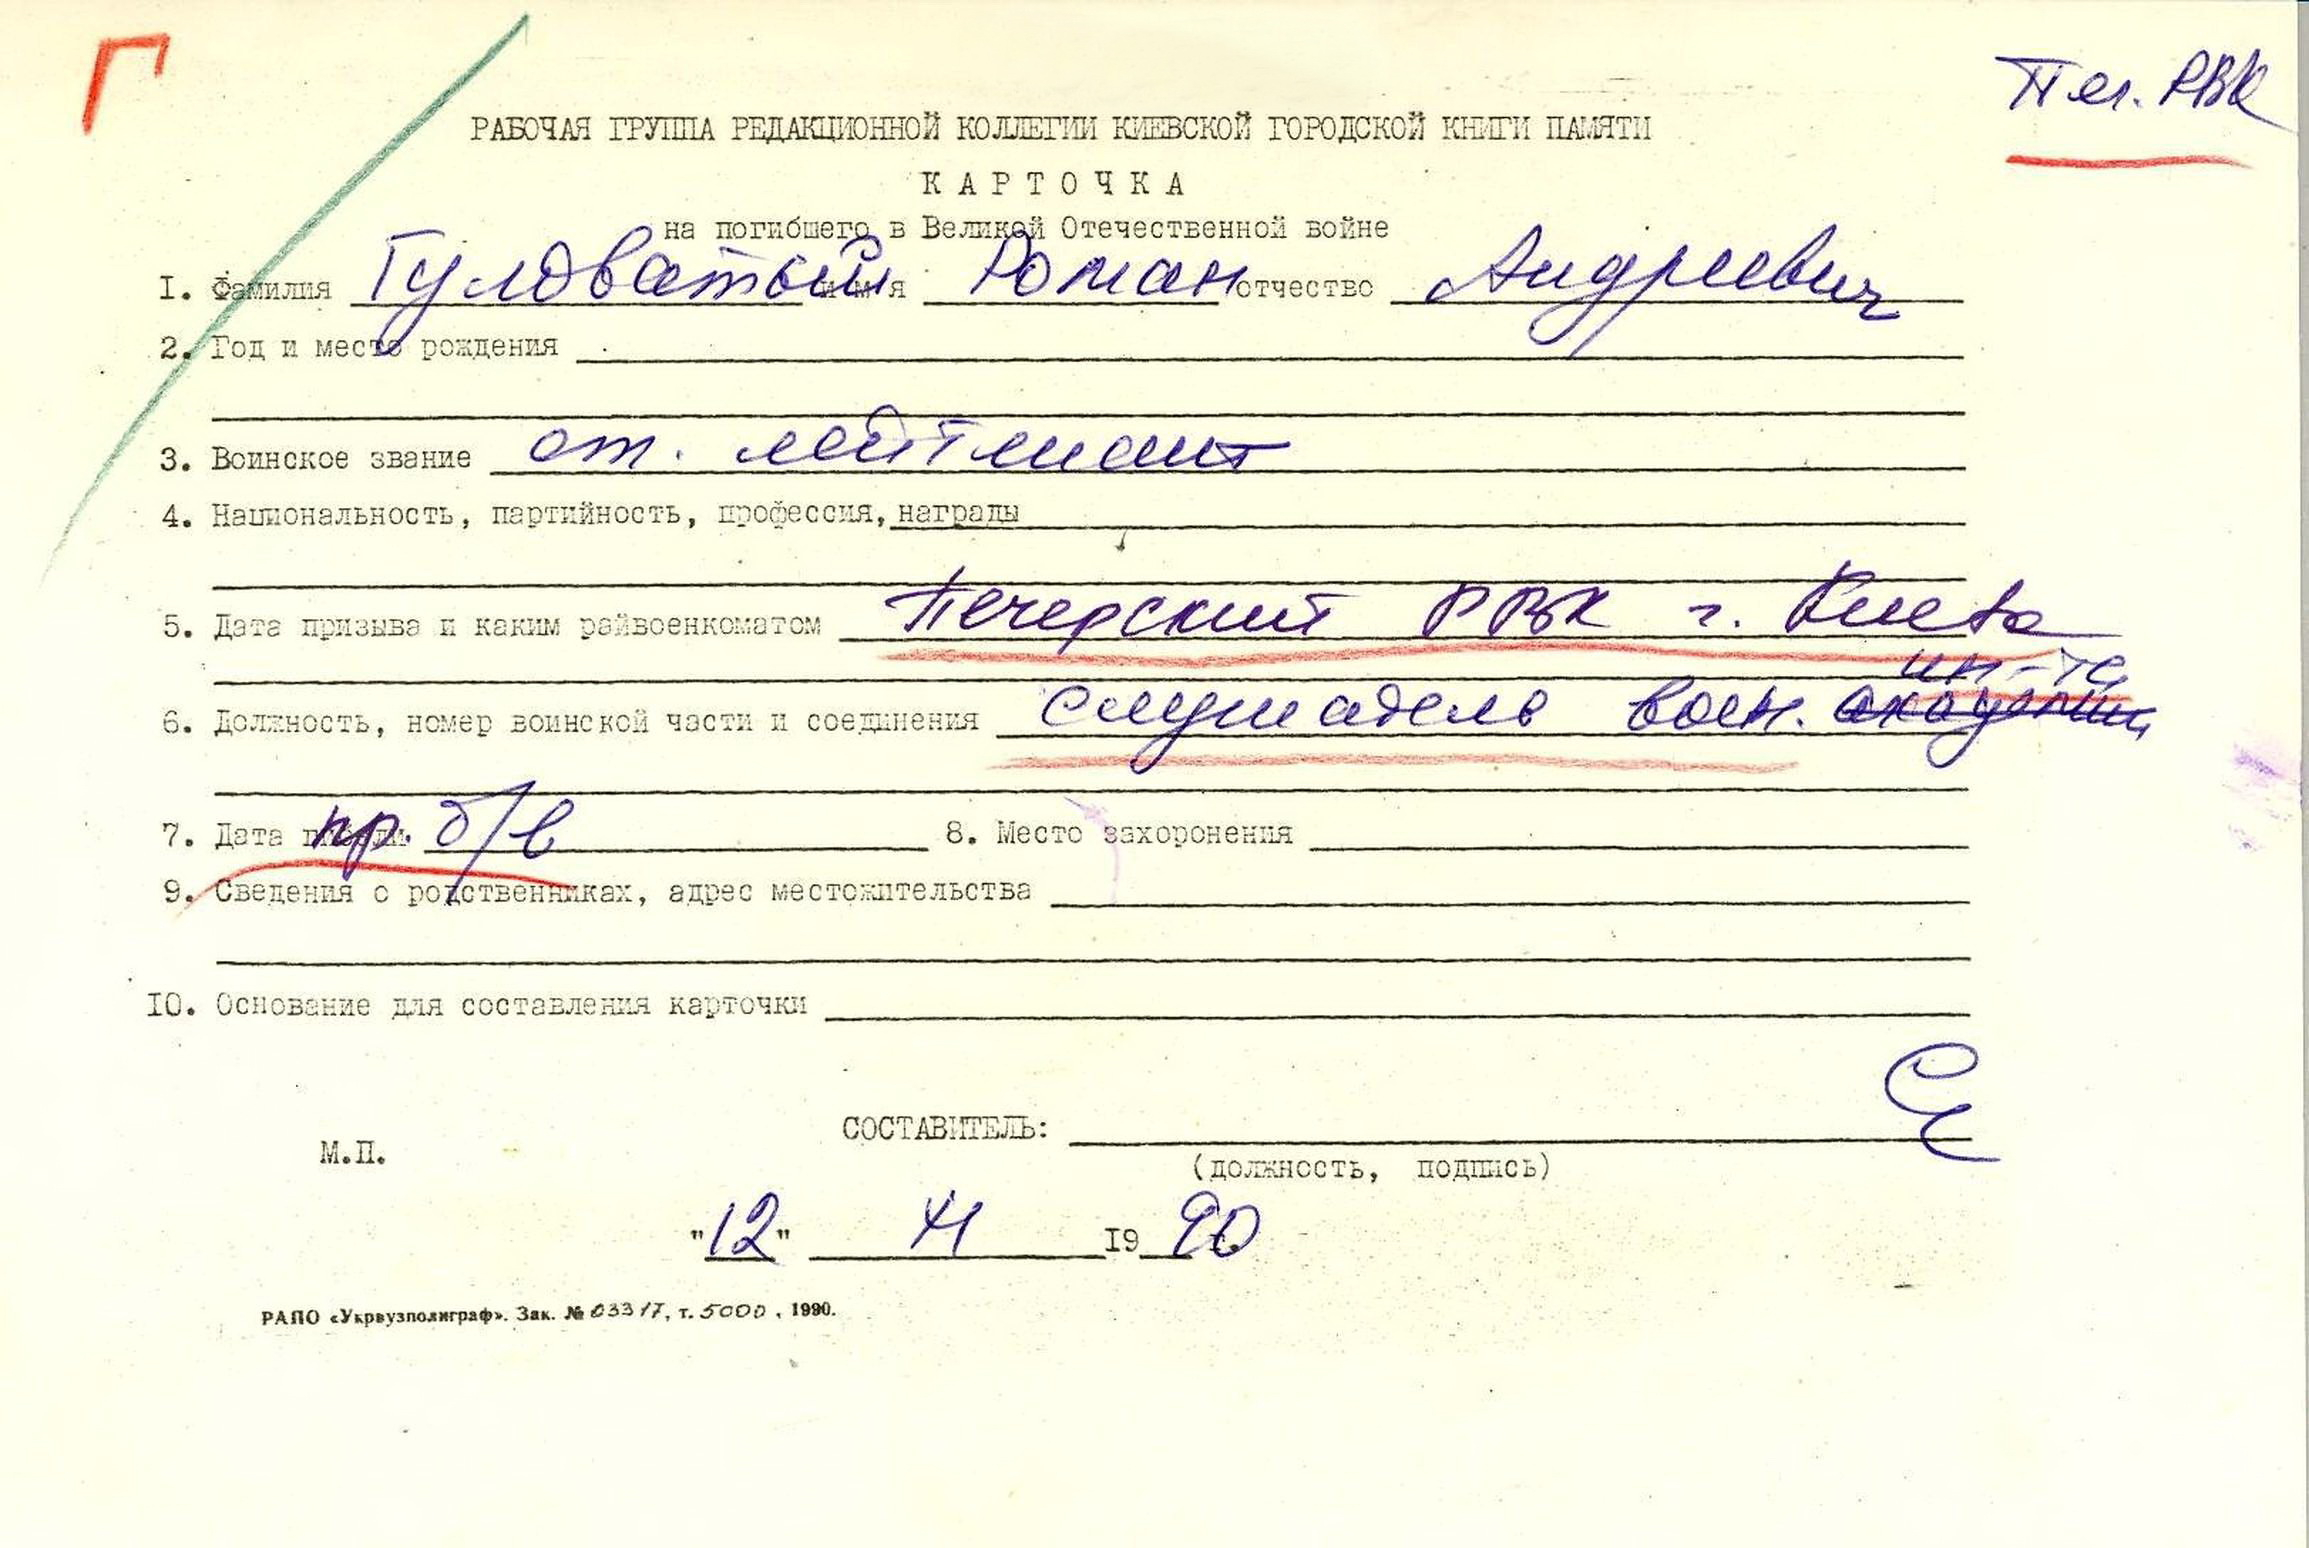 Г
Печ. РВК
РАБОЧАЯ ГРУППА РЕДАКЦИОННОЙ КОЛЛЕГИИ КИЕВСКОЙ ГОРОДСКОЙ КНИГИ ПАМЯТИ
КАРТОЧКА
на погибшего в Великой Отечественной войне
I. Фамилия Гуловатый имя Роман отчество Андреевич
2. Год и место рождения
3. Воинское звание ст. лейтенант
4. Национальность, партийность, профессия, награды
5. Дата призыва и каким райвоенкоматом Печерский РВК г. Киева
ин-та
6. Должность, номер воинской части и соединения слушатель воен. академии
7. Дата гибели пр. б/в 8. Место захоронения
9. Сведения о родственниках, адрес местожительства
IO. Основание для составления карточки
СОСТАВИТЕЛЬ:
М.П.
(должность, подпись)
"12" 19 90
РАПО «Укрвузполиграф». Зак. № 03317, т. 5000, 1990.